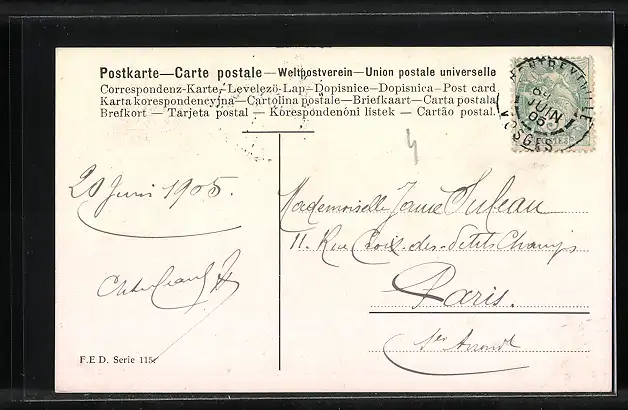 Postkarte—Carte postale—Weltpostverein—Union postale universelle
Correspondenz-Karte—Levelezö-Lap—Dopisnice—Dopisnica—Post card
Karta korespondencyjna—Cartolina postale—Briefkaart—Carta postala
Brefkort — Tarjeta postal — Körespöndenöni listek — Cartão postal.
VOSGES
JUIN
05
4
20 Juin 1905.
Mademoiselle Jeanne
11. Rue Croix-des-Petits Champs
Paris.
1er Arrondt
F.E D. Serie 115